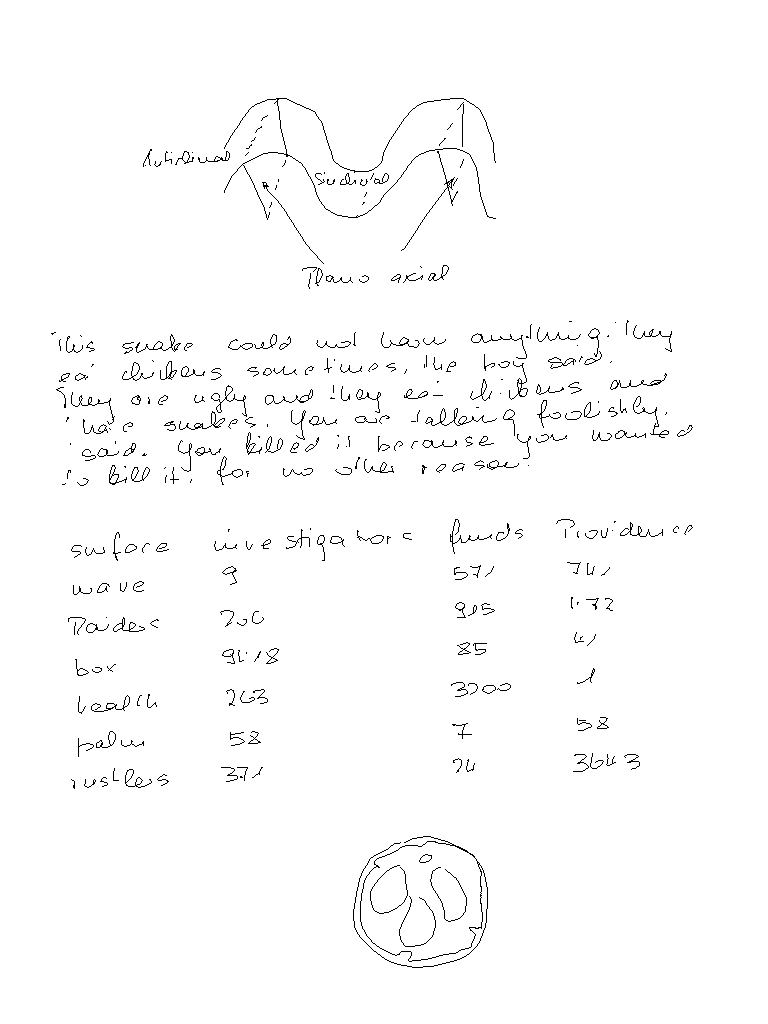 Anticlinal
Sinclinal
Plano axial
This snake could not harm anything. They
eat chickens sometimes, the boy said.
They are ugly and they eat chickens and
I hate snakes. You are talking foolishly,
I said. You killed it because you wanted
to kill it, for no other reason.
surface investigators funds Providence
wave 9 571 741
Raiders 200 915 1.72
box 94.18 85 41
health 263 3200 1
palm 58 7 58
rustlers 371 24 3643